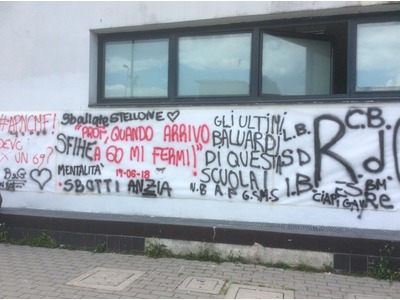 #APNCME!
DEVC
X UN 69?
B&G
Sballate STELLONE
SFIHE
"PROF, QUANDO ARRIVO
A 60 MI FERMI!"
19-06-18
MENTALITÀ
SBOTTI ANZIA
GLI ULTIMI
BALUARDI
DI QUESTA
SCUOLA!
N.B A.F G.S M.S
L.B.
S D
I.B.
C.B.
F S BM
CIAPI GAY Re